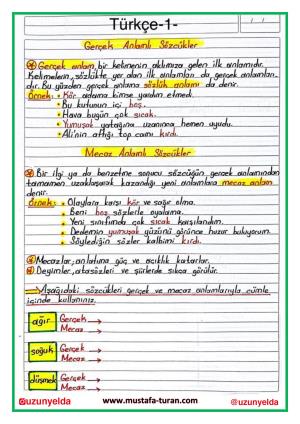 Türkçe-1-
Gerçek Anlamlı Sözcükler
Gerçek anlam, bir kelimenin aklımıza gelen ilk anlamıdır.
Kelimelerin, sözlükte yer alan ilk anlamları da gerçek anlamları-
dır. Bu yüzden gerçek anlama sözlük anlamı da denir.
Örnek: • Kör adama kimse yardım etmedi.
• Bu kutunun içi boş.
• Hava bugün çok sıcak.
• Yumuşak yatağına uzanınca hemen uyudu.
• Ali'nin attığı top camı kırdı.
Mecaz Anlamlı Sözcükler
Bir ilgi ya da benzetme sonucu sözcüğün gerçek anlamından
tamamen uzaklaşarak kazandığı yeni anlamlara mecaz anlam
denir.
Örnek: • Olaylara karşı kör ve sağır olma.
• Beni boş sözlerle oyalama.
• Yeni sınıfında çok sıcak karşılandım.
• Dedemin yumuşak yüzünü görünce huzur buluyorum.
• Söylediğin sözler kalbimi kırdı.
Mecazlar, anlatıma güç ve açıklık katarlar.
Deyimler, atasözleri ve şiirlerde sıkça görülür.
Aşağıdaki sözcükleri gerçek ve mecaz anlamlarıyla cümle
içinde kullanınız.
ağır Gerçek →
Mecaz →
soğuk Gerçek →
Mecaz →
düşmek Gerçek →
Mecaz →
@uzunyelda www.mustafa-turan.com @uzunyelda